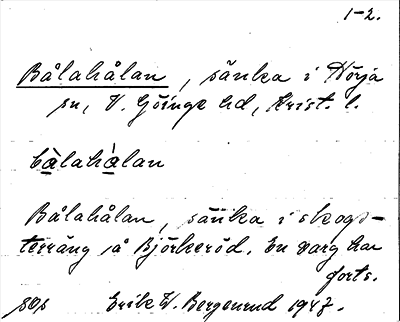 1-2.
Bålahålan, sänka i Nörja
sn, V. Göinge hd, Krist. l.
bàlahàlan
Bålahålan, sänka i skogs-
terräng å Björkeröd. En varg har
forts.
Erik W. Bergenrud 1947.